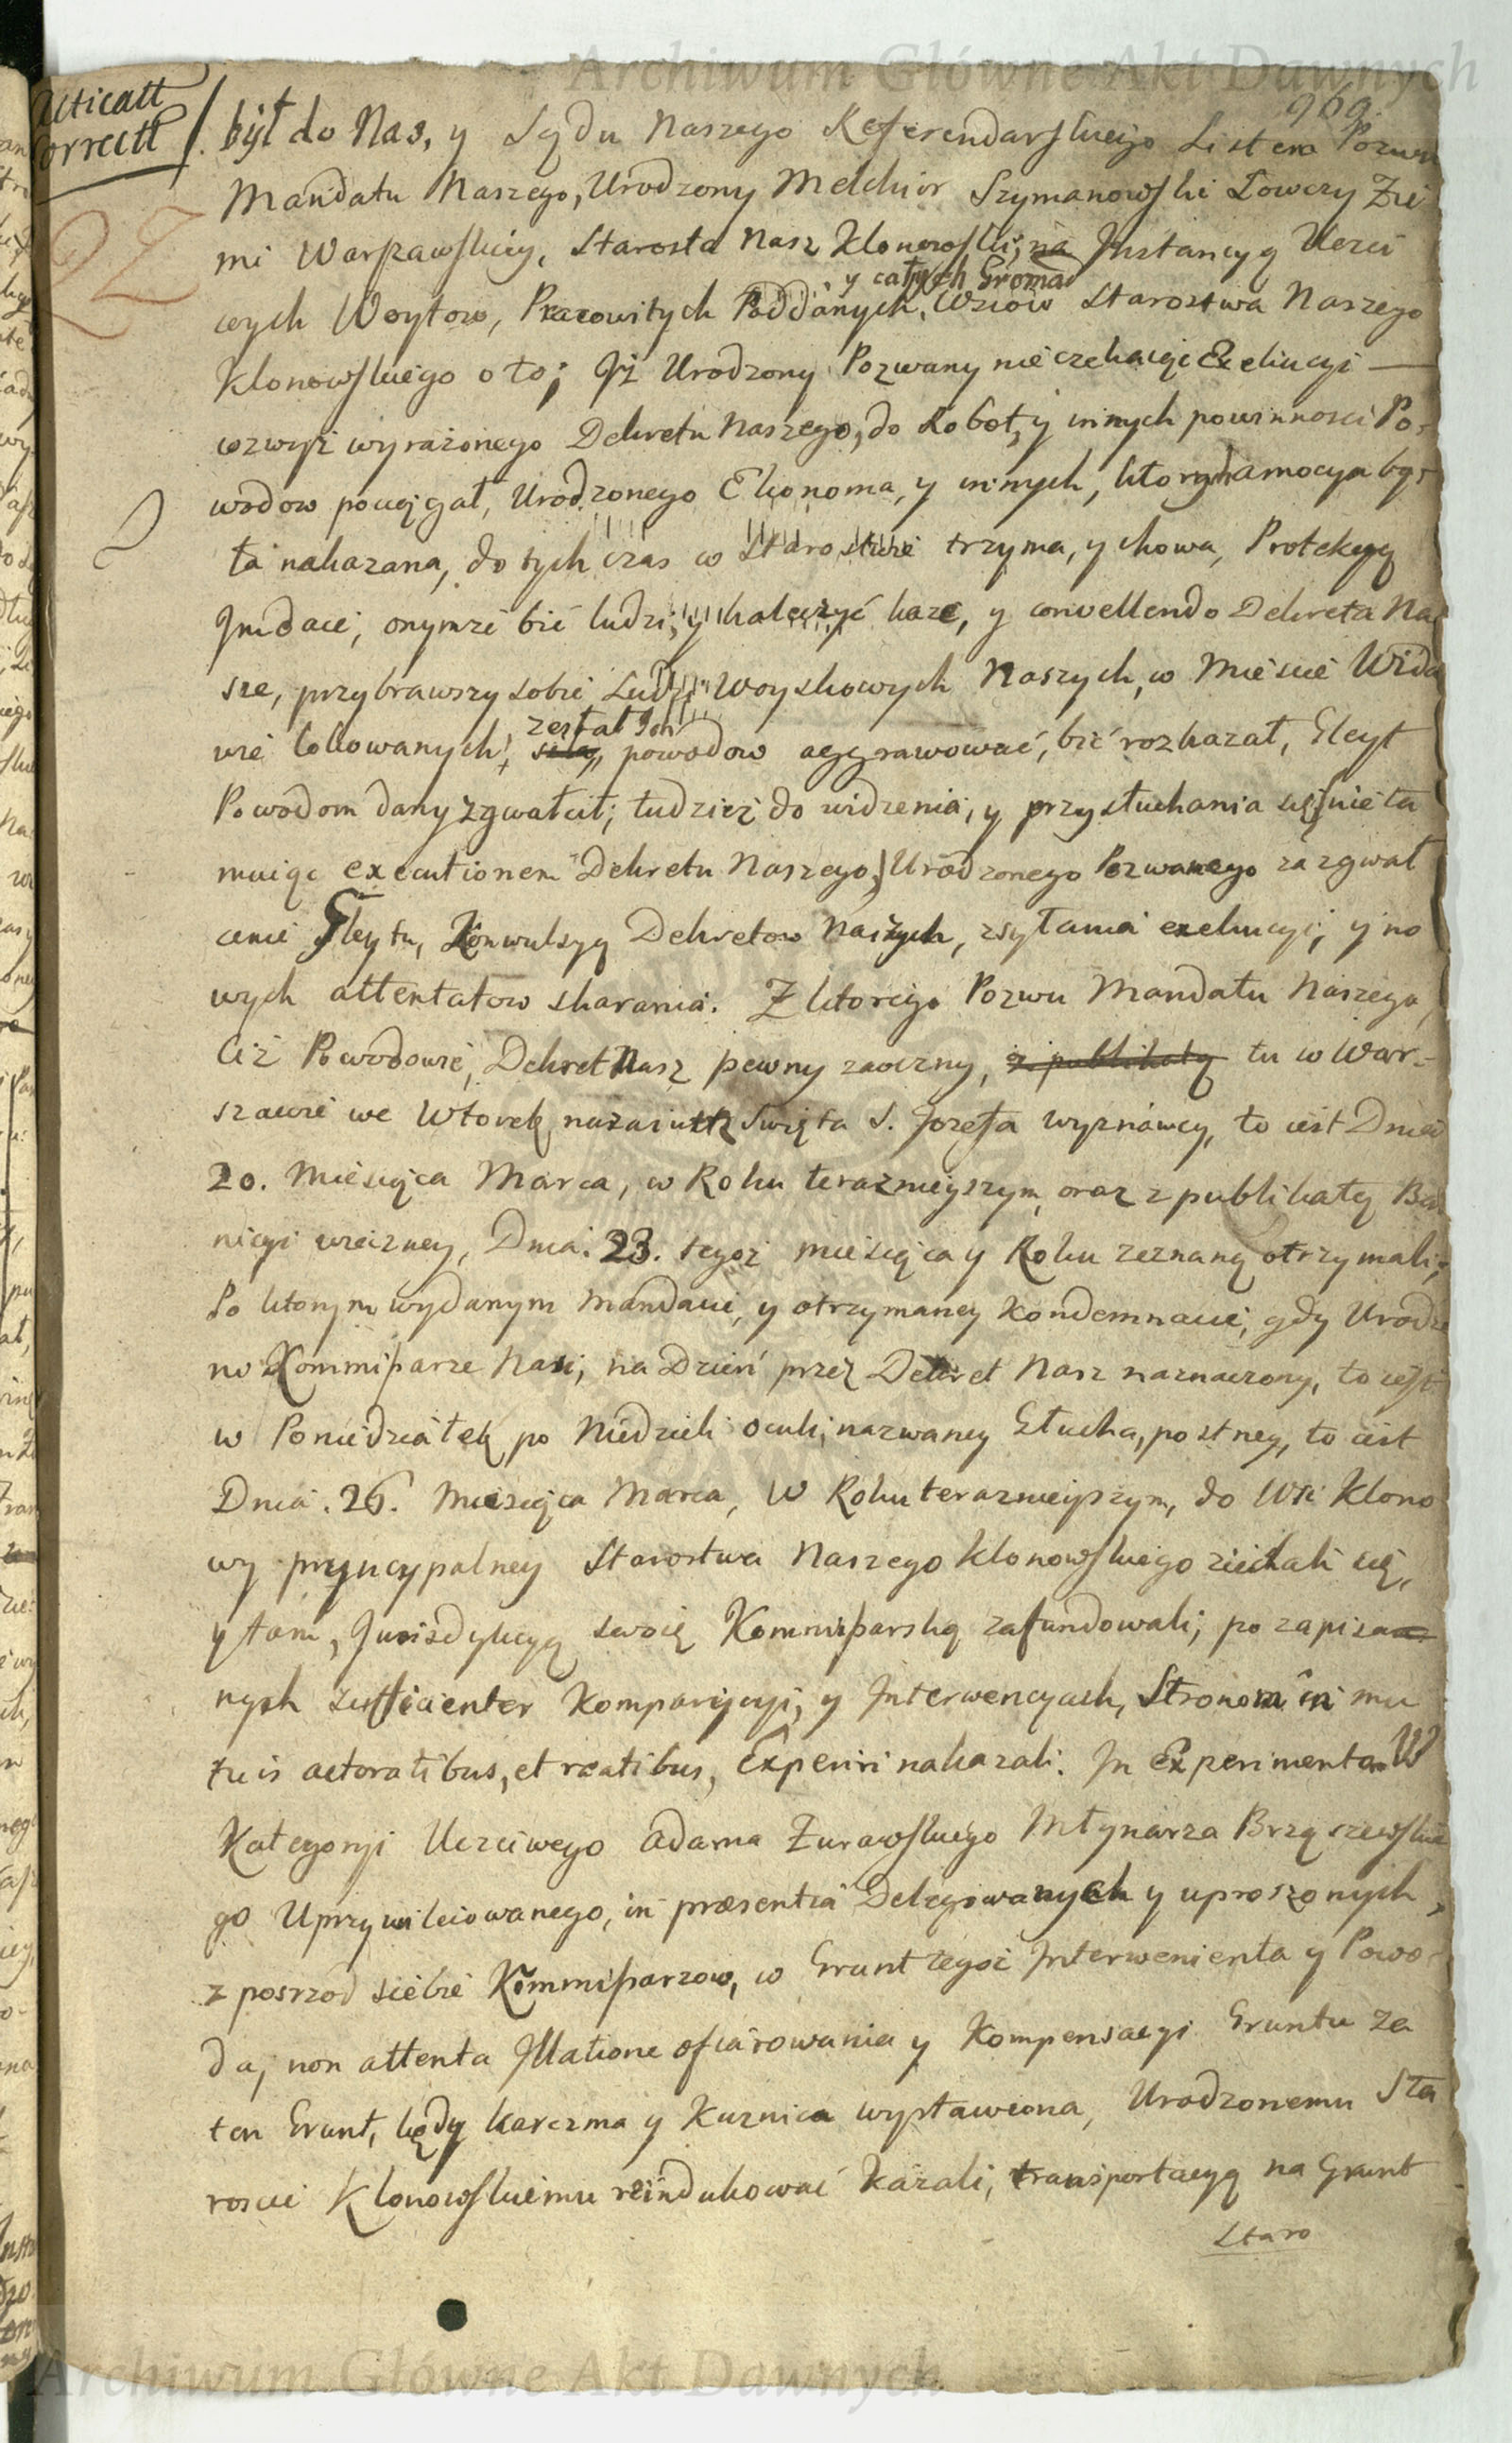 Archiwum Główne Akt Dawnych
969.
Correctt
był do Nas, y Sądu Naszego Referendarskiego Listem Pozwu
Mandatu Naszego, Urodzony Melchior Szymanowski Łowczy Zie
mi Warszawskiey, Starosta Nasz Klonowski, na Jnstancyą Uczci
y całych Gromad
wych Woytow, Pracowitych Poddanych, Wsiow Starostwa Naszego
Klonowskiego oto; Jż Urodzony Pozwany nie czekaiąc Exekucyi
wzwysz wyrażonego Dekretu Naszego, do Robot, y innych powinnosci Po-
wodow pociągał, Urodzonego Ekonoma, y innych, ktorych amocya by-
ła nakazana, do tych czas w Starostwie trzyma, y chowa, Protekcyą
Jm daie, onymże bić ludzi, y kaleczyć każe, y convellendo Dekreta Na
sze, przybrawszy sobie Ludzi Woyskowych Naszych, w Miescie Wida
wie lokowanych, zesłał Jch
powodow aggrawować, bić rozkazał, Gleyt
Powodom dany zgwałcił; tudzież do widzenia, y przysłuchania się nieta
muiąc executionem Dekretu Naszego, Urodzonego Pozwanego za zgwał
cenie Gleytu, Konwulsyą Dekretow Naszych, zsyłania exekucyi, y no
wych attentatow skarania. Z ktorego Pozwu Mandatu Naszego,
Ciż Powodowie, Dekret Nasz pewny zaoczny, z publikatą tu w War-
szawie we Wtorek nazaiutrz Swięta S. Jozefa wyznawcy, to iest Dnia
20. Miesiąca Marca, w Roku teraznieyszym, oraz z publikatą Ba
nicyi wieczney, Dnia 23. tegoż miesiąca y Roku zeznaną otrzymali;
Po ktorym wydanym Mandacie, y otrzymaney Kondemnacie, gdy Urodze
ni Kommissarze Nasi, na Dzień przez Dekret Nasz naznaczony, to iest
w Poniedziałek po Niedzieli Oculi, nazwaney Głucha, postney, to iest
Dnia 26. Miesiąca Marca, W Roku teraznieyszym, do Wsi Klono
wy pryncypalney Starostwa Naszego Klonowskiego ziechali się,
y tam, Jurisdykcyą swoię Kommissarską zafundowali; po zapisa
nych sufficienter Komparycyi, y Jnterwencyach, Stronom in mu
tuis actoratibus, et reatibus, Experiri nakazali. Jn Experimento W
Kategoryi Uczciwego Adama Zurawskiego Młynarza Brząszewskie
go Uprzywileiowanego, in præsentia Delegowanych y uproszonych,
z posrzod siebie Kommissarzow, w Grunt tegoż Jnterwenienta y Powo-
da, non attenta Jllatione ofiarowania y Kompensacyi Gruntu za
ten Grunt, kędy karczma y Kuznica wystawiona, Urodzonemu Sta
roscie Klonowskiemu reindukować kazali, transportacyą na Grunt
Staro
Archiwum Główne Akt Dawnych